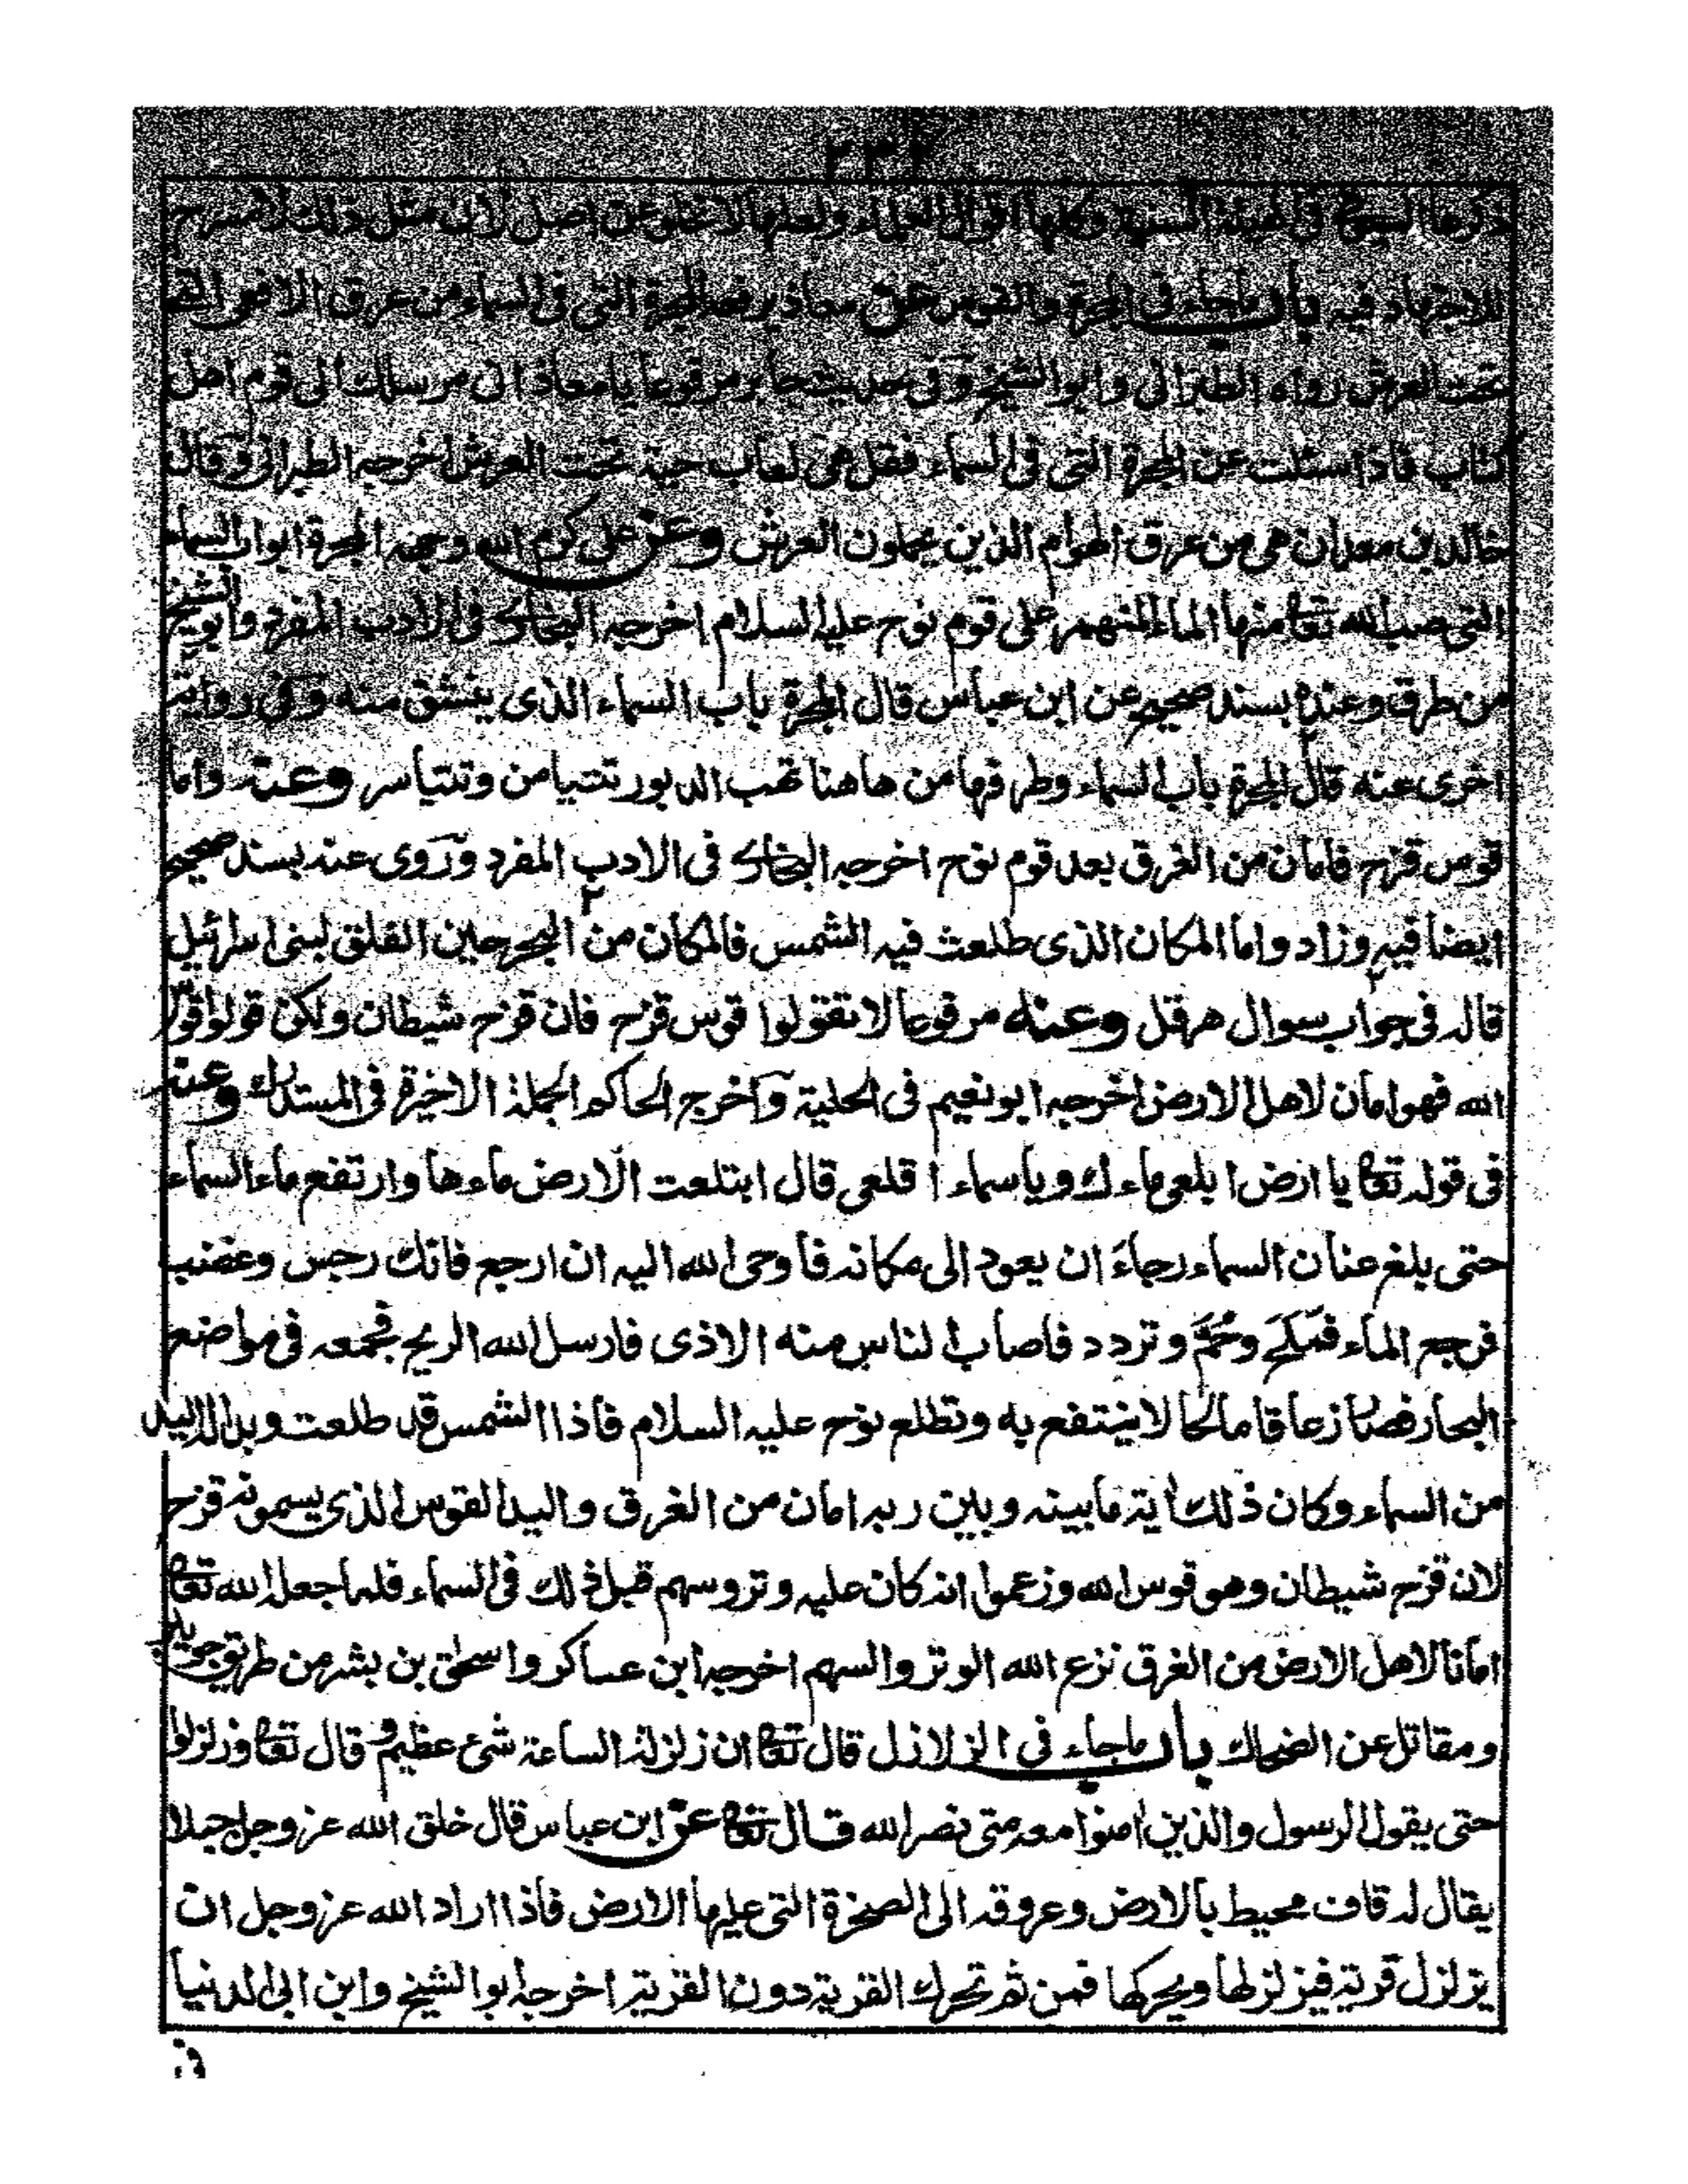 ذكرها السيوطي في الهيئة السنية وكلها اقوال العلماء ولعلها لا تخلو عن اصل لان مثل ذلك لا مسرح
للاجتهاد فيه باب ماجاء في المجرة والقوس عن معاذ يرفعه المجرة التى فى السماء من عرق الافعى التى
تحت العرش رواه الطبرانى وابو الشيخ وفى حديث جابر مرفوعا يا معاذ انى مرسلك الى قوم اهل
كتاب فاذا سئلت عن المجرة التى فى السماء فقل هى لعاب حية تحت العرش اخرجه الطبرانى وقال
خالد بن معدان هى من عرق الهوام الذين يحملون العرش وعن على كرم الله وجهه المجرة ابواب السماء
التى صب الله تعا منها الماء المنهمر على قوم نوح عليه السلام اخرجه البخارى فى الادب المفرد وابو الشيخ
من طرق وعنده بسند صحيح عن ابن عباس قال المجرة باب السماء الذى ينشق منه وفى رواية
اخرى عنه قال المجرة باب السماء وطرفها من هاهنا تهب الدبور تتيامن وتتياسر وعنه واما
قوس قزح فامان من الغرق بعد قوم نوح اخرجه البخارى فى الادب المفرد وروى عنه بسند صحيح
ايضا فيه وزاد واما المكان الذى طلعت فيه الشمس فالمكان من البحر حين انفلق لبنى اسرائيل
قاله فى جواب سوال هرقل وعنه مرفوعا لا تقولوا قوس قزح فان قزح شيطان ولكن قولوا قوس
الله فهو امان لاهل الارض اخرجه ابو نعيم فى الحلية واخرج الحاكم الجملة الاخيرة فى المستدرك وعنه
فى قوله تعا يا ارض ابلعى ماءك وياسماء اقلعى قال ابتلعت الارض ماءها وارتفع ماء السماء
حتى بلغ عنان السماء رجاءَ ان يعود الى مكانه فاوحى الله اليه ان ارجع فانك رجس وغضب
فرجع الماء وحُمَّ وتردد فاصاب الناس منه الاذى فارسل الله الريح فجمعه فى مواضع
البحار فصار زعاقا مالحا لا ينتفع به وتطلع نوح عليه السلام فاذا الشمس قد طلعت وبدا له اليد
من السماء وكان ذلك اية ما بينه وبين ربه امان من الغرق واليد القوس الذى يسمونه قزح
لان قزح شيطان وهو قوس الله وزعموا انه كان عليه وتر وسهم قبل ذلك فى السماء فلما جعل الله تعا
امانا لاهل الارض من الغرق نزع الله الوتر والسهم اخرجه ابن عساكر واسحق بن بشر من طريق جويبر
ومقاتل عن الضحاك باب ماجاء فى الزلازل قال تعا ان زلزلة الساعة شئ عظيم وقال تعا وزلزلوا
حتى يقول الرسول والذين امنوا معه متى نصر الله قال تعا عن ابن عباس قال خلق الله عز وجل جبلا
يقال له قاف محيط بالارض وعروقه الى الصخرة التى عليها الارض فاذا اراد الله عز وجل ان
يزلزل قرية فيزلزلها ويحركها فمن ثم تحرك القرية دون القرية اخرجه ابو الشيخ وابن ابى الدنيا
فى